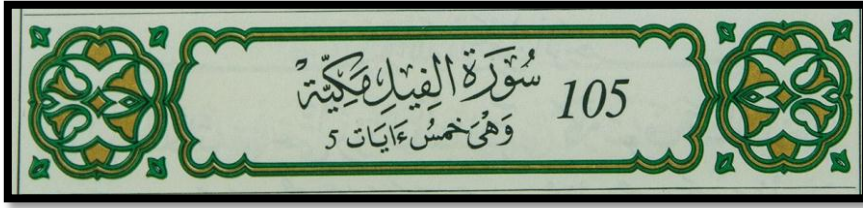 105 سُورَةُ الْفِيلِ مَكِّيَّةٌ
وَهْيَ خَمْسُ ءَايَات 5